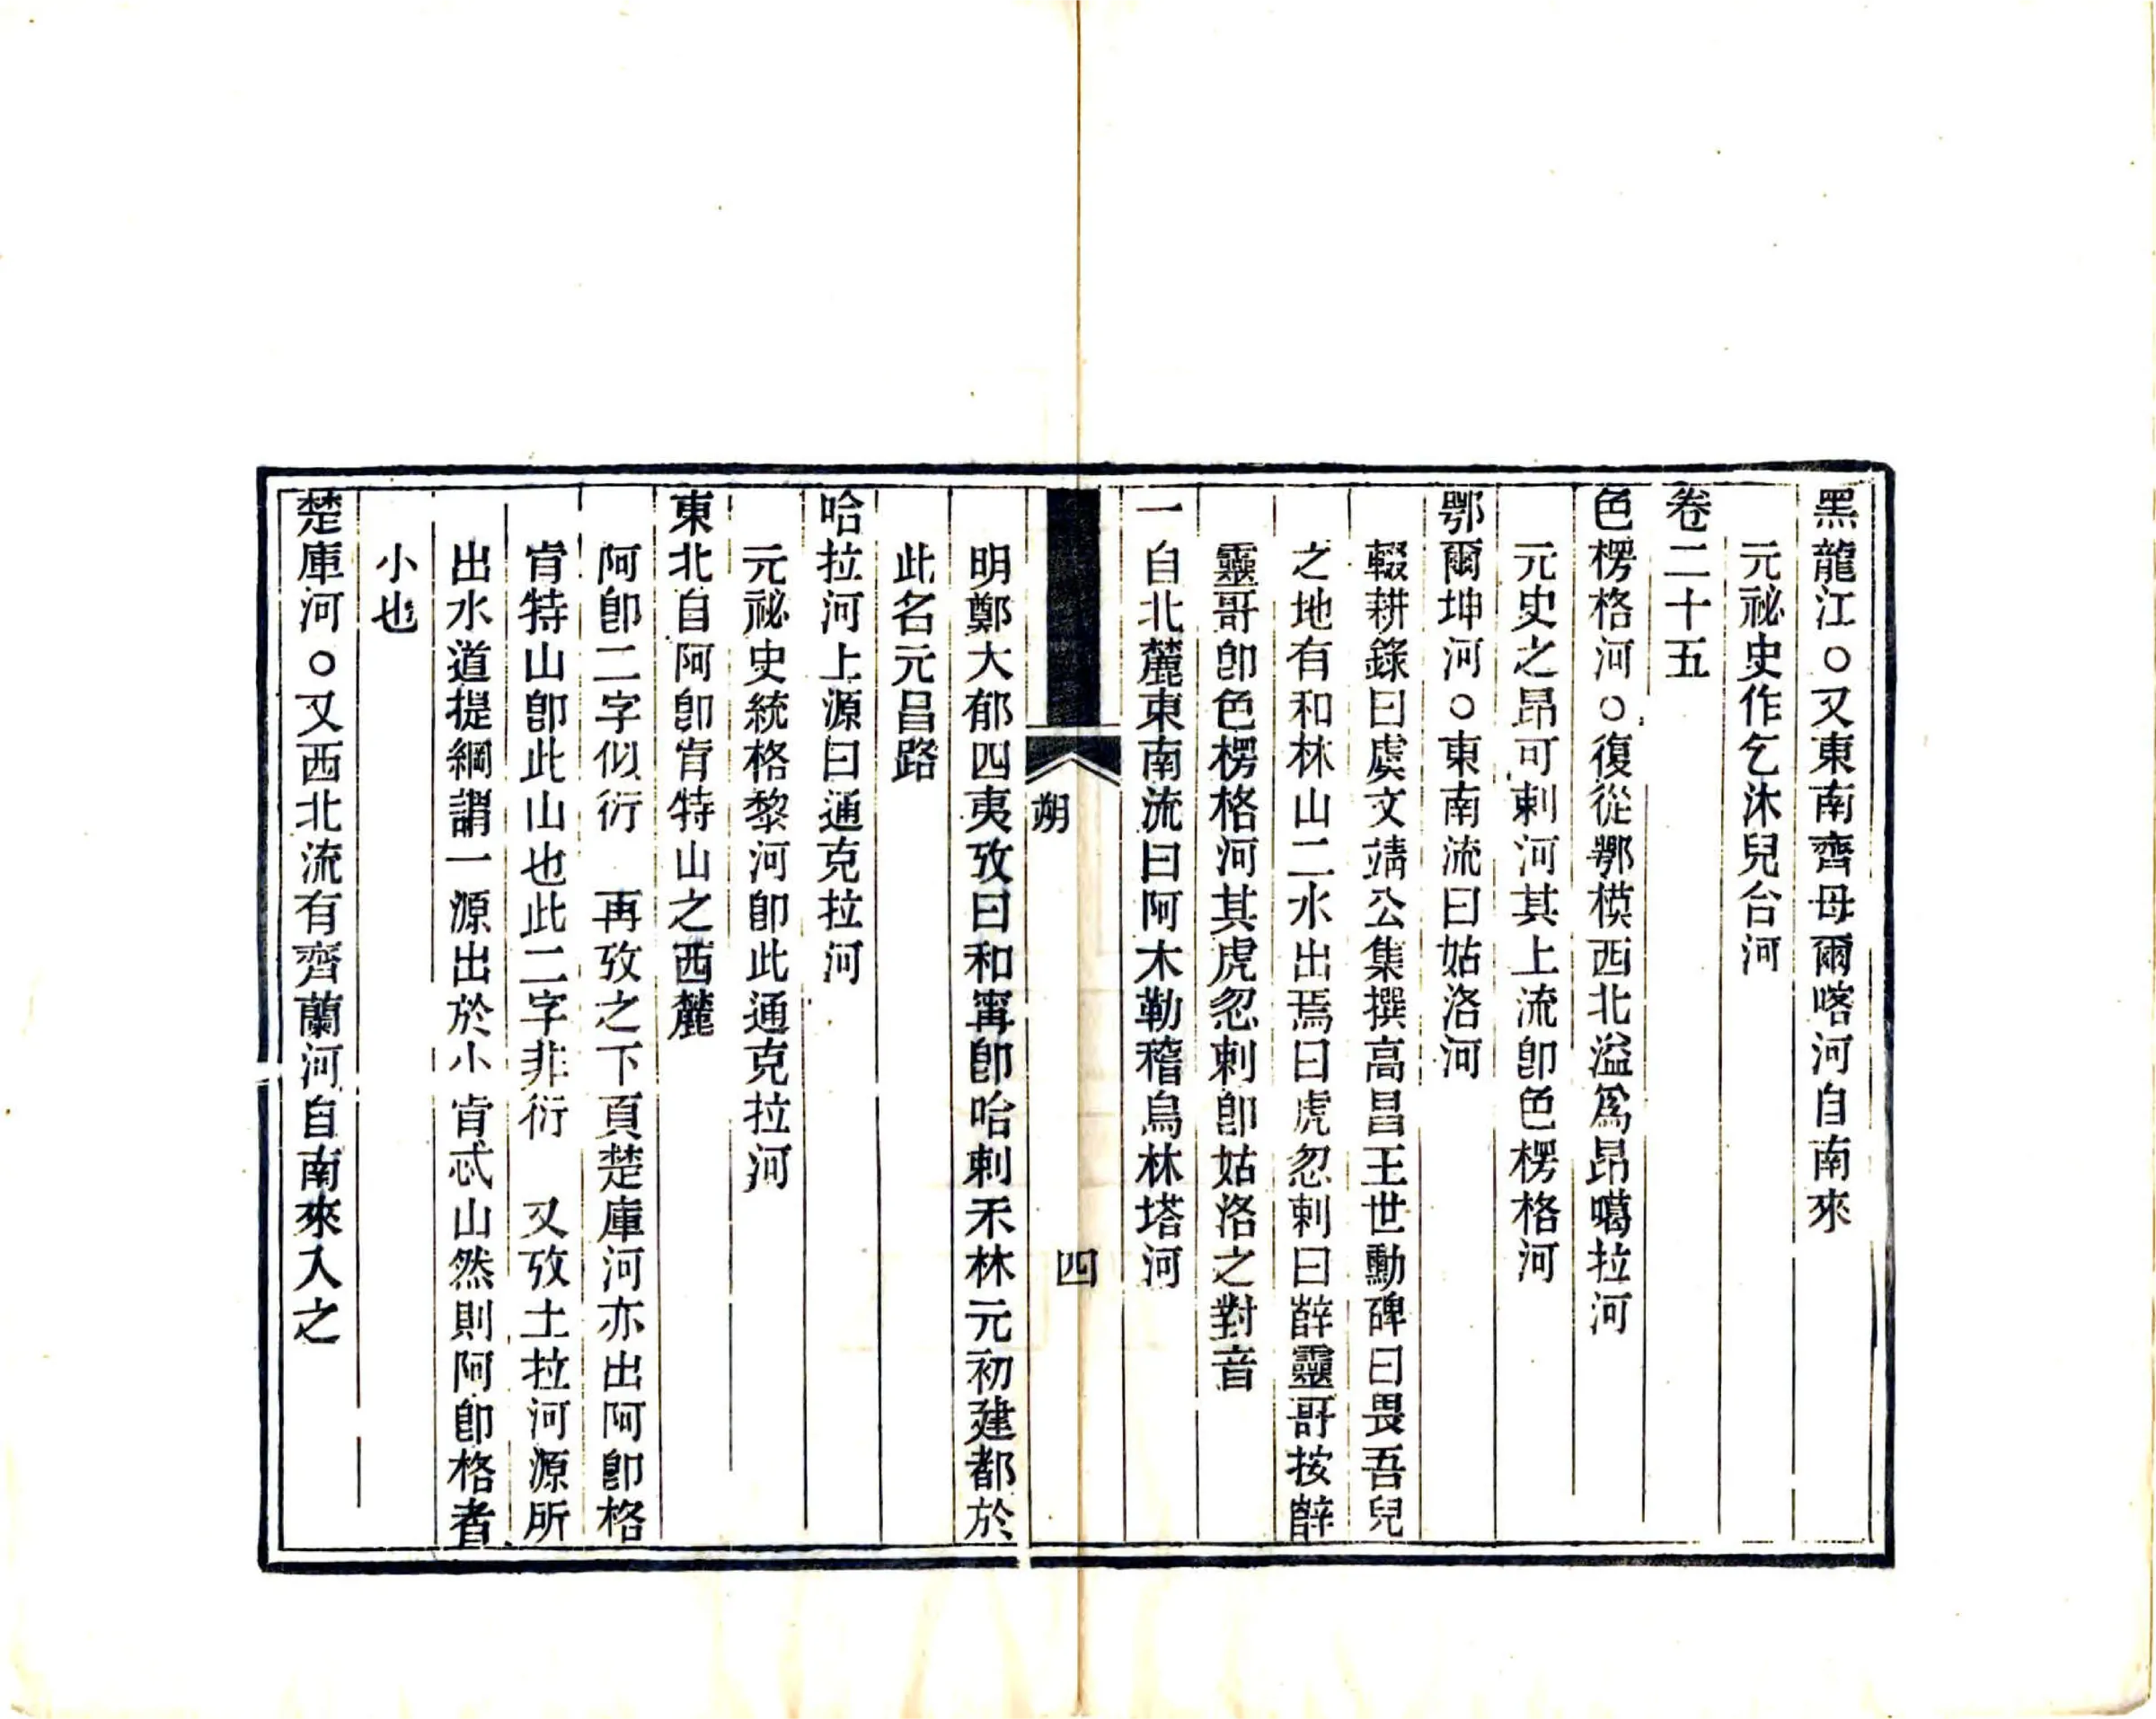 黑龍江○又東南齊母爾喀河自南來
元祕史作乞沐兒台河
卷二十五
色楞格河○復從鄂模西北溢爲昂噶拉河
元史之昂可剌河其上流卽色楞格河
鄂爾坤河○東南流曰姑洛河
輟耕錄曰虞文靖公集撰高昌王世勳碑曰畏吾兒
之地有和林山二水出焉曰虎忽剌曰薛靈哥按薛
靈哥卽色楞格河其虎忽剌卽姑洛之對音
一自北麓東南流曰阿木勒稽烏林塔河
朔
四
明鄭大郁四夷攷曰和甯卽哈剌禾林元初建都於
此名元昌路
哈拉河上源曰通克拉河
元祕史統格黎河卽此通克拉河
東北自阿卽肯特山之西麓
阿卽二字似衍　再攷之下頁楚庫河亦出阿卽格
肯特山卽此山也此二字非衍　又攷土拉河源所
出水道提綱謂一源出於小肯忒山然則阿卽格者
小也
楚庫河○又西北流有齊蘭河自南來入之